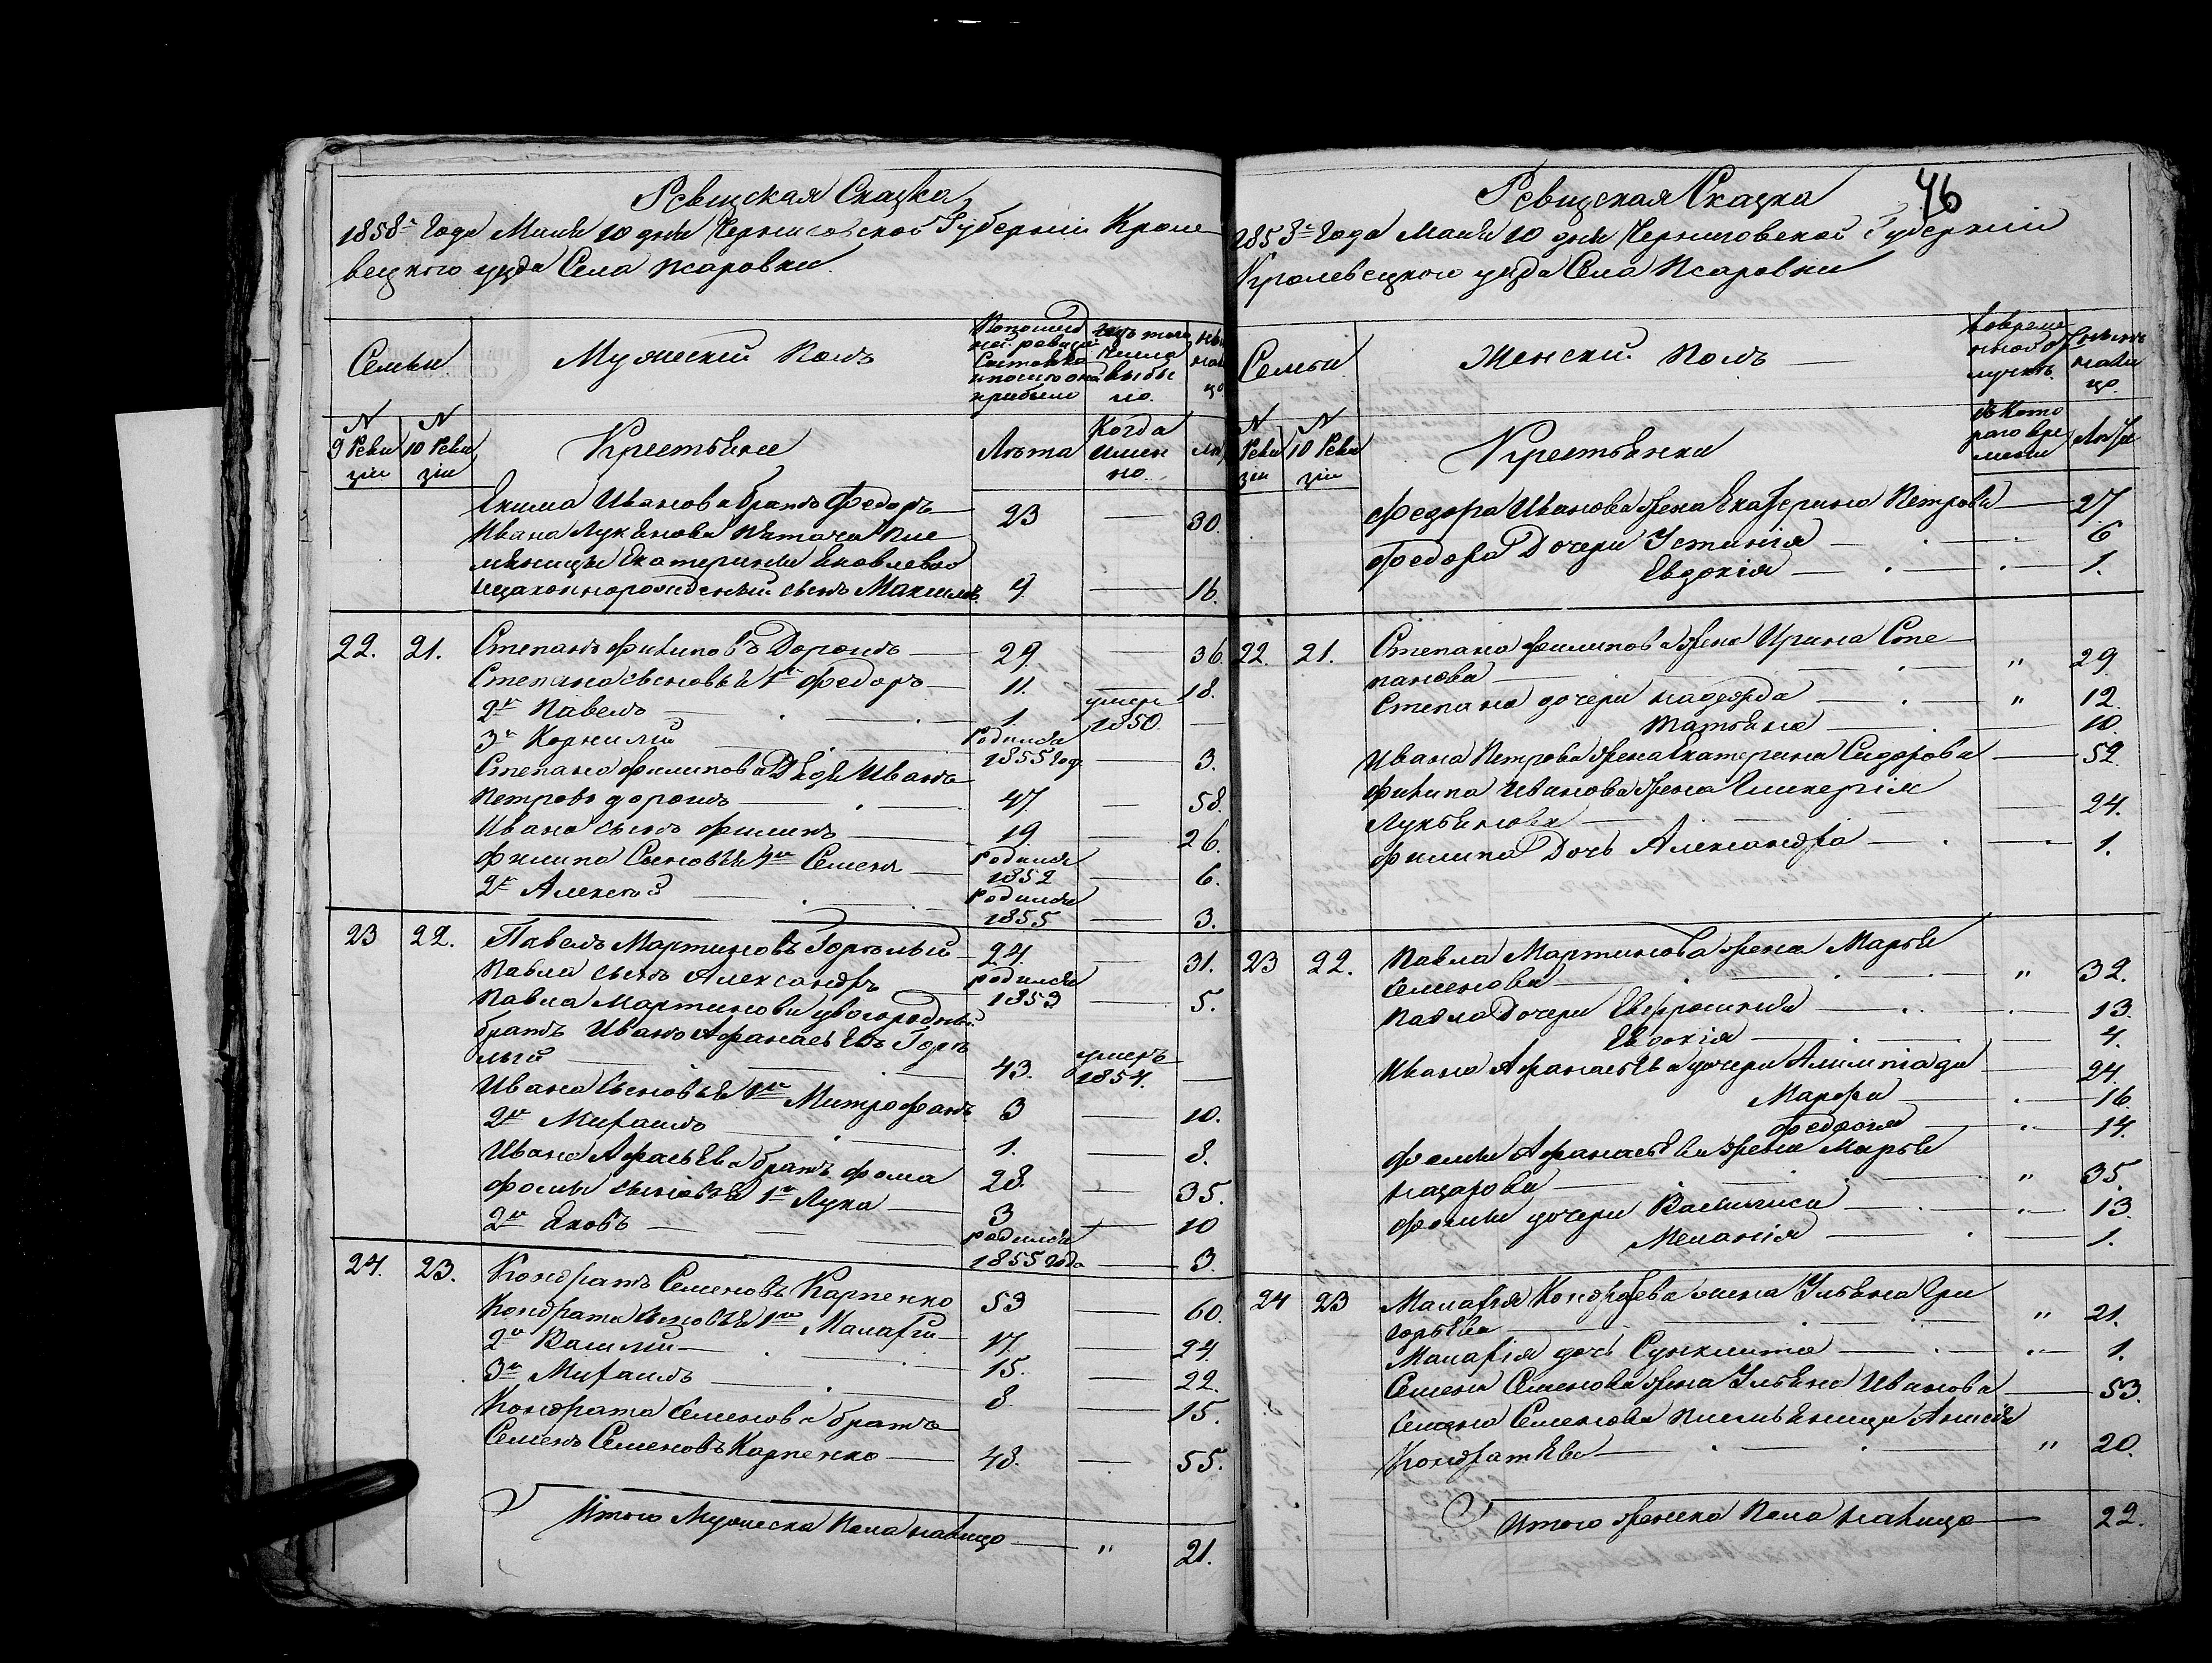 Ревизская Сказка
1858 года Маия 10 дня Черниговской Губерніи Кроле
вецкого уезда Села Псаровки.
Семьи
Мужеский полъ
По последней ревизіи состояло и после оной прибыло
Изъ того числа выбыло.
Ныне на лицо
N 9 Ревизіи
N 10 Ревизіи
Крестьяне
Лѣта
Когда именно.
Екима Иванова братъ Федоръ — 23 — 30.
Ивана Лукьянова Пле
мяницы Екатерины Яковлевой
незаконнорожденный сынъ Максимъ 9. — 16.
22. 21. Степанъ Филиповъ Дорошъ — 29. — 36.
Степана сыновья 1й Федоръ — 11. — 18.
2й Павелъ — 1. умеръ 1850. —
3й Корнилій — родился 1855 год. — 3.
Степана Филипова Дядя Иванъ
Петровъ Дорошъ — 47 — 58.
Ивана сынъ Филипъ — 19. — 26.
Филипа Сыновья 1й Семенъ — родился 1852 — 6.
2й Алексей — родился 1855 — 3.
23 22. Павелъ Мартиновъ Горѣлый — 24. — 31.
Павла сынъ Александръ — родился 1853 — 5.
Павла Мартинова двоюродный
братъ Иванъ Афанасьевъ Горѣ
лый — 43. умеръ 1854. —
Ивана Сыновья 1й Митрофанъ 3 — 10.
2й Михаилъ — 1. — 8.
Ивана Афасьева братъ Фома 28. — 35.
Фомы сыновья 1й Лука — 3 — 10
2й Яковъ — родился 1855 года — 3.
24. 23. Кондратъ Семеновъ Карпенко 53 — 60.
Кондрата сыновья 1й Малафій — 17. — 24.
2й Василій — 15. — 22.
3й Михаилъ — 8. — 15.
Кондрата Семенова братъ
Семенъ Семеновъ Карпенко — 48. — 55.
Итого Мужеска Пола налицо — " 21.
46
Ревизская Сказка
1858 года Маия 10 дня Черниговской Губерніи
Кролевецкого уезда Села Псаровки
Семьи
Женский Полъ
Во временной отлучкѣ.
Ныне на лицо.
N Ревизіи
N 10 Ревизіи
Крестьянки
Съ которого времени
Лѣта
Федора Иванова жена Екатерина Петрова — 27.
Федора Дочери Устинія — 6
Евдокія — 1.
22. 21. Степана Филипова жена Ирина Сте
панова — " 29.
Степана дочери Надежда — " 12.
Татьяна — 10.
Ивана Петрова жена Екатерина Сидорова — 52.
Филипа Иванова жена Гликерія
Лукьянова — 24.
Филипа Дочь Александра — 1.
23 22. Павла Мартинова жена Марья
Семенова — " 32.
Павла Дочери Евфросинія — 13.
Евдокія — 4.
Ивана Афанасьева дочери — 24.
Марфа — 16.
14.
Фомы Афанасьева жена Марья
Назарова — " 35.
Фомы дочери Василиса — 13.
Меланія — 1.
24 23 Малафія Кондратьева жена Ульяна Гри
горьева — " 21.
Малафія дочь — 1.
Семена Семенова жена Ульяна Иванова — 53.
Семена Семенова племяница Анисія
Кондратьева — " 20.
Итого женска Пола налицо — 22.